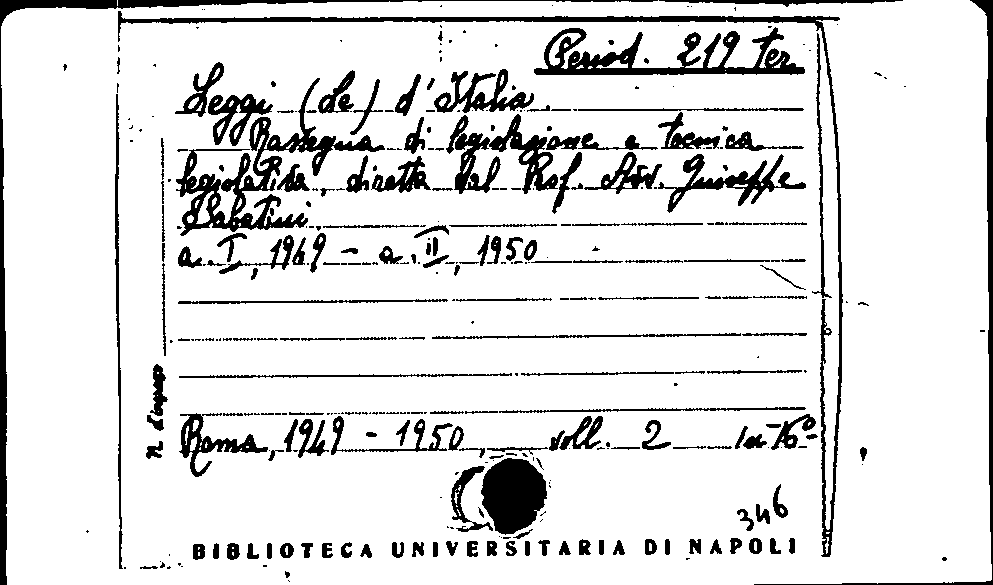 Period. 219 ter
Leggi (Le) d'Italia.
Rassegna di legislazione e tecnica
legislativa, diretta dal Prof. Avv. Giuseppe
Sabatini
a. I, 1949 - a. II, 1950
Roma, 1949 - 1950, voll. 2 in-16º
N. d'ingresso
346
BIBLIOTECA UNIVERSITARIA DI NAPOLI